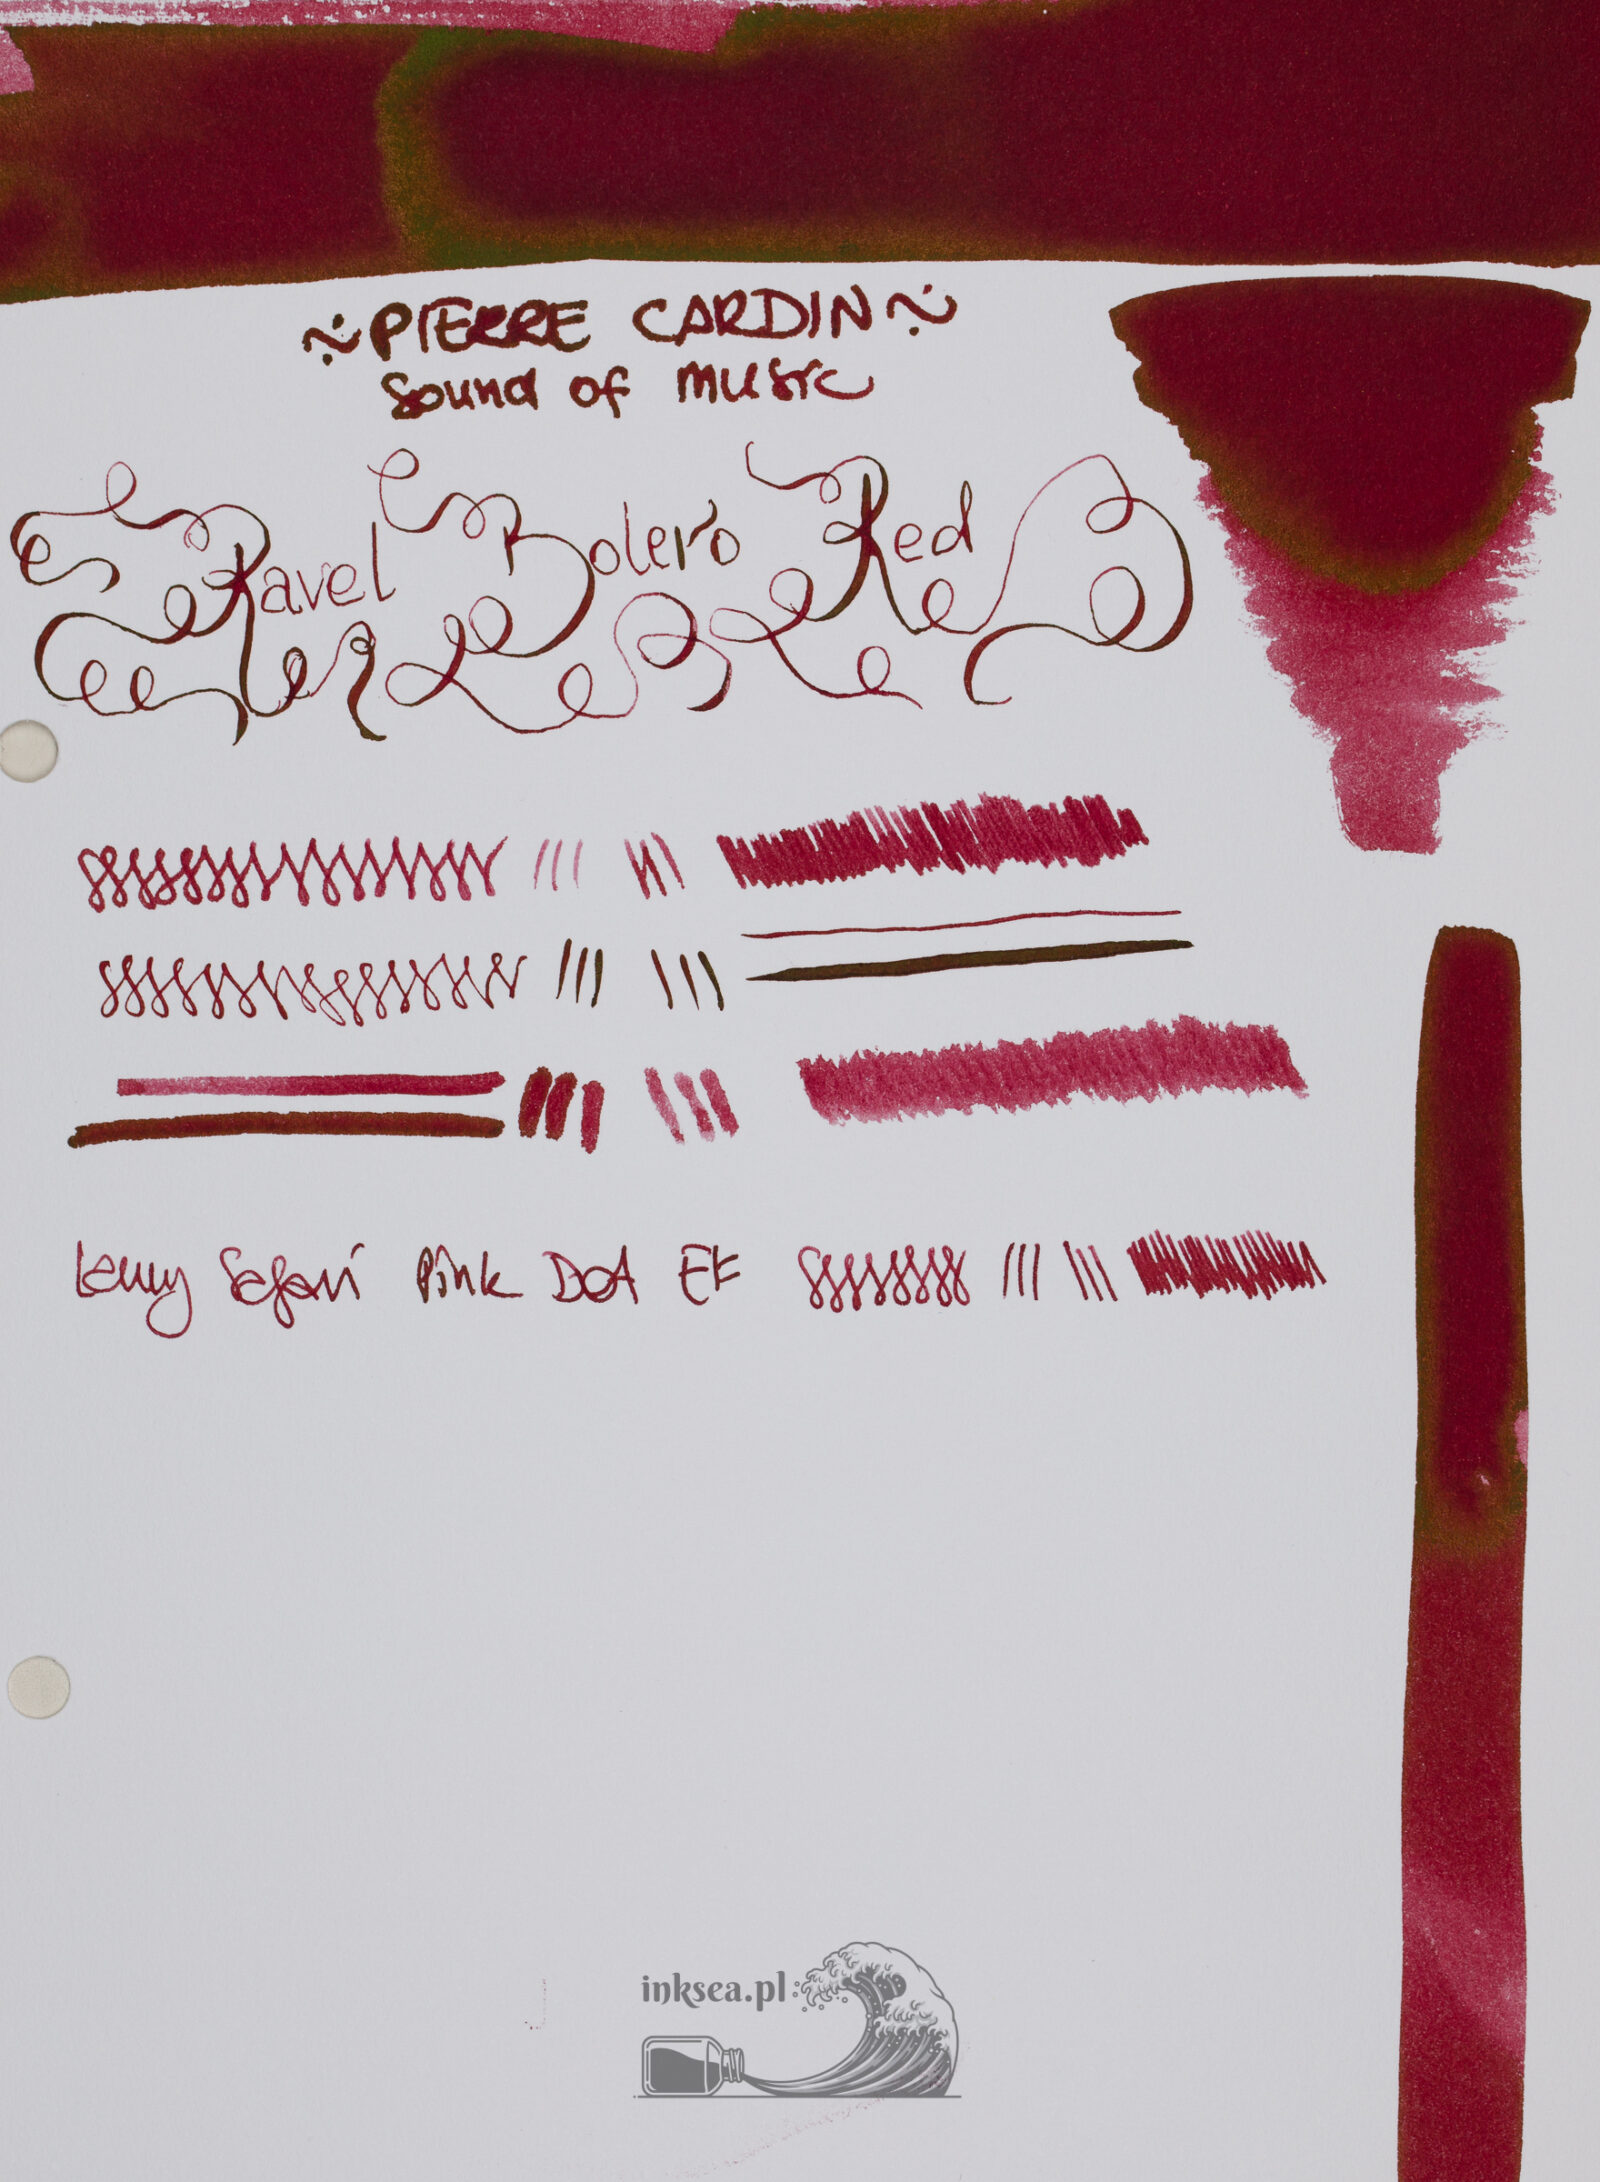 ~PIERRE CARDIN~
Sound of music
Ravel Bolero Red
Lamy Safari Pink Dot EF
inksea.pl